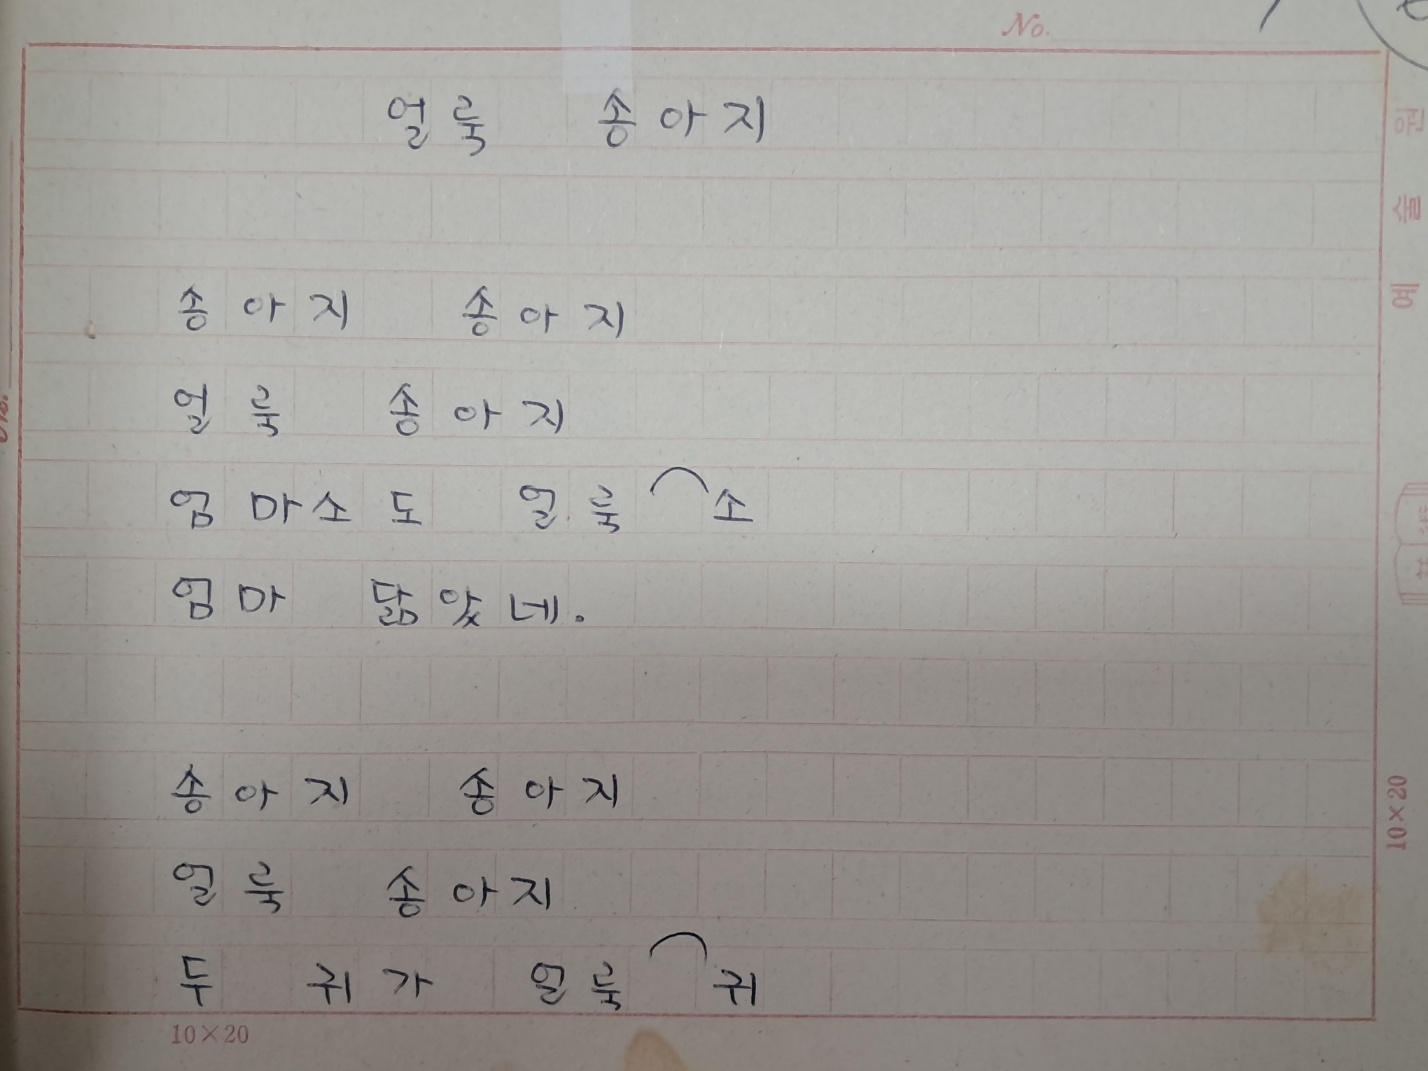 No.
얼룩 송아지
송아지 송아지
얼룩 송아지
엄마소도 얼룩⌒소
엄마 닮았네.
송아지 송아지
얼룩 송아지
두 귀가 얼룩⌒귀
10×20
10×20
원
술
예